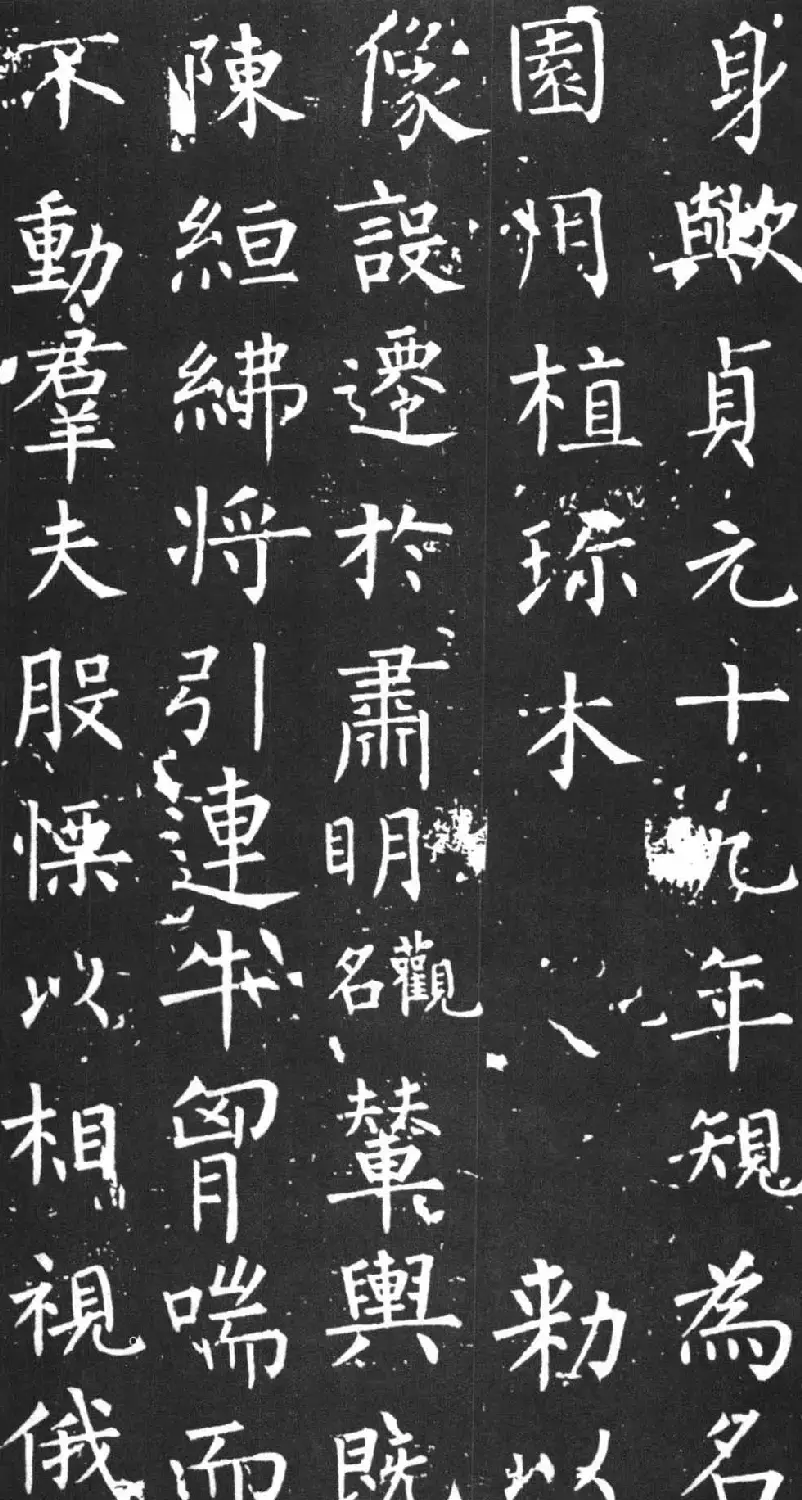 身歟貞元十九年規為名
園用植珎木勑以
像設遷於肅明觀名輦輿既
陳絙紼将引連牛胷喘而
不動羣夫股慄以相視俄